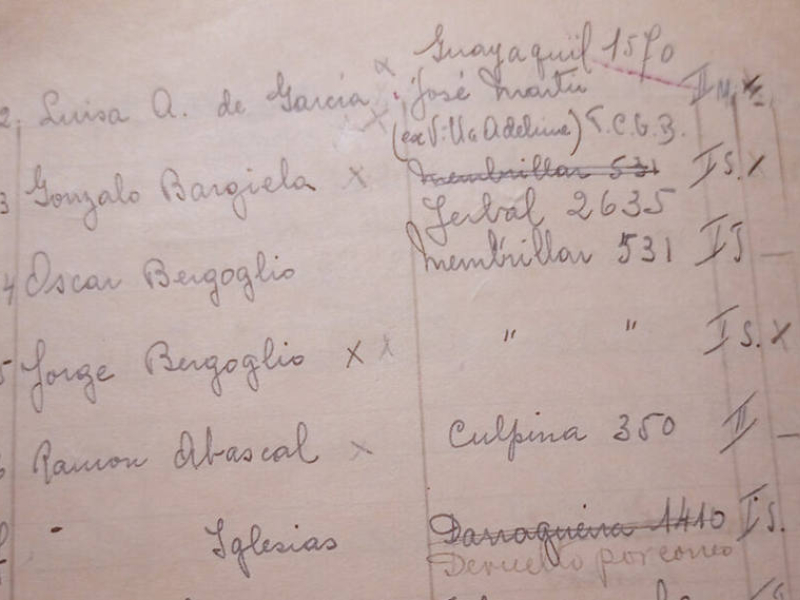 Guayaquil 1570
2, Luisa A. de Garcia x . José Martí II M. x
(ex Villa Adelina) T.C.G.B.
3 Gonzalo Bargiela x Membrillar 531 I S. x
Yerbal 2635
4 Oscar Bergoglio Membrillar 531 I J —
5 Jorge Bergoglio x x " " I S. x
Ramon Abascal x Culpina 350 II —
" Iglesias Darragueira 1410 I S.
Devuelto por correo